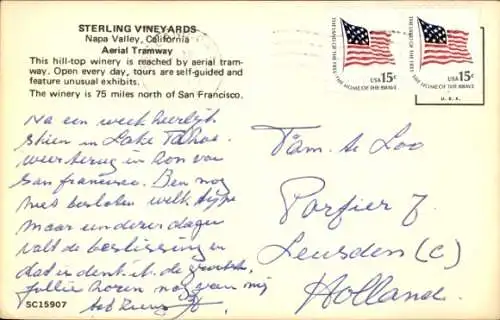 STERLING VINEYARDS
Napa Valley, California
Aerial Tramway
This hill-top winery is reached by aerial tram-
way. Open every day, tours are self-guided and
feature unusual exhibits.
The winery is 75 miles north of San Francisco.
Na een week heerlijk
skien in Lake Tahoe
weer terug in
San Francisco. Ben nog
niet besloten welk
maar een dezer dagen
valt de beslissing en
dat is denk ik de
jullie horen nog van mij
SC15907
THE LAND OF THE FREE
THE HOME OF THE BRAVE
USA 15c
THE LAND OF THE FREE
THE HOME OF THE BRAVE
USA 15c
U.S.A.
Fam. te Loo
Porfier 7
Leusden (C)
Holland